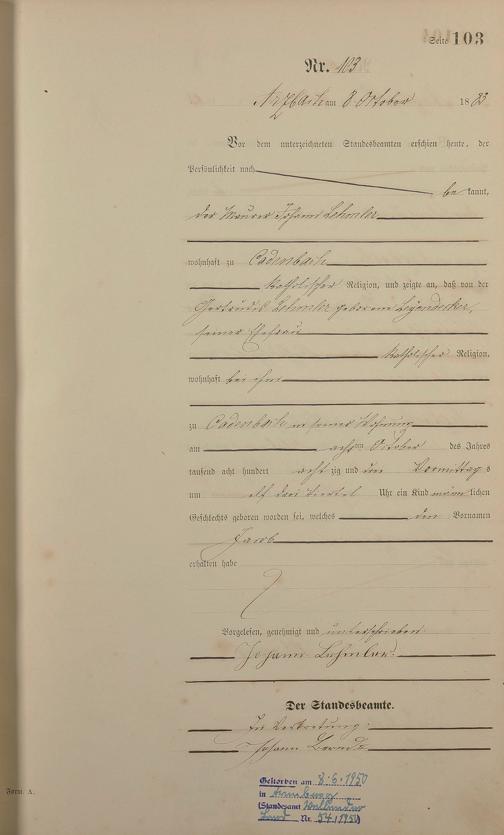 Seite 103
Nr. 103
Arzbach am 8 October 1883
Vor dem unterzeichneten Standesbeamten erschien heute, der
Persönlichkeit nach
be kannt,
der Maurer Johann Lehmler
wohnhaft zu Cadenbach
katholischer Religion, und zeigte an, daß von der
Gertrude Lehmler geborene Leyendecker,
seiner Ehefrau
katholischer Religion,
wohnhaft bei ihm
zu Cadenbach in seiner Wohnung
am acht ten October des Jahres
tausend acht hundert acht zig und drei Vormittag s
um elf drei viertel Uhr ein Kind männ lichen
Geschlechts geboren worden sei, welches den Vornamen
Jacob
erhalten habe
Vorgelesen, genehmigt und unterschrieben
Johann Lehmler
Der Standesbeamte.
In Vertretung:
Johann
Form. A.
Gestorben am 8.6.1950
in
(Standesamt
Nr. 54/1950)